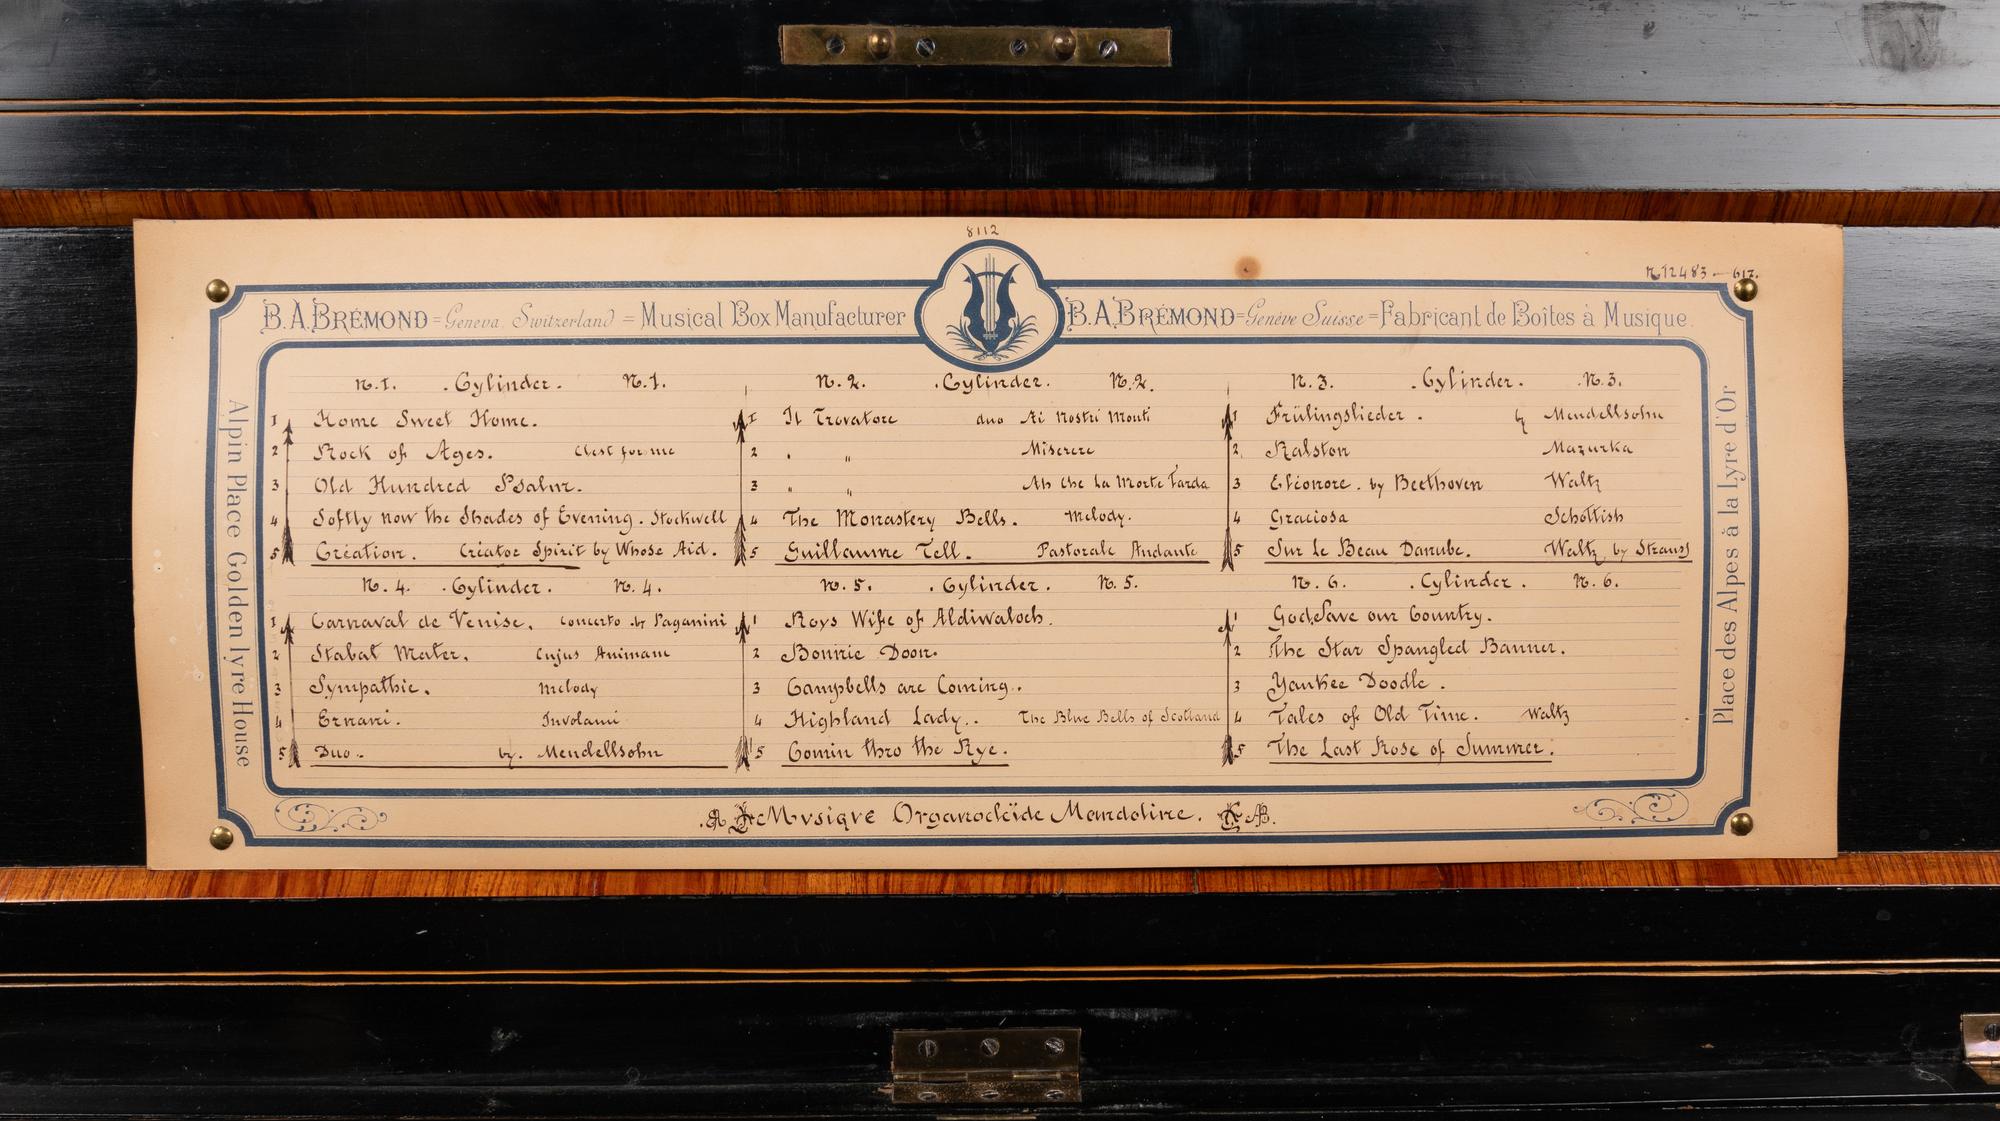 8112
N 12483 — 617.
B.A. BRÉMOND = Geneva, Switzerland = Musical Box Manufacturer
B.A. BRÉMOND = Genève Suisse = Fabricant de Boîtes à Musique.
Alpin Place Golden lyre House
N. 1. . Cylinder. N. 1.
1 Home Sweet Home.
2 Rock of Ages. Clest for me
3 Old Hundred Psalm.
4 Softly now the Shades of Evening. Stockwell
5 Création. Créator Spirit by Whose Aid.
N. 2. . Cylinder. N. 2.
1 Il Trovatore duo Ai Nostri Monti
2 " " Miserere
3 " " Ah Che La Morte Tarda
4 The Monastery Bells. Melody.
5 Guillaume Tell. Pastorale Andante
N. 3. . Cylinder. N. 3.
1 Frülingslieder. by Mendellsohn
2 Ralston Mazurka
3 Eléonore. by Beethoven Waltz
4 Graciosa Schottish
5 Sur Le Beau Danube. Waltz by Strauss
N. 4. . Cylinder. N. 4.
1 Carnaval de Venise. concerto by Paganini
2 Stabat Mater. Cujus Animam
3 Sympathie. Melody
4 Ernani. Involami
5 Duo. by. Mendellsohn
N. 5. . Cylinder. N. 5.
1 Roys Wife of Aldiwaloch.
2 Bonnie Doon.
3 Campbells are Coming.
4 Highland Lady. The Blue Bells of Scotland
5 Comin thro the Rye.
N. 6. . Cylinder. N. 6.
1 God Save our Country.
2 The Star Spangled Banner.
3 Yankee Doodle.
4 Tales of Old Time. Waltz
5 The Last Rose of Summer.
Place des Alpes à la Lyre d'Or
Mvsiqve Organocleïde Mandoline.